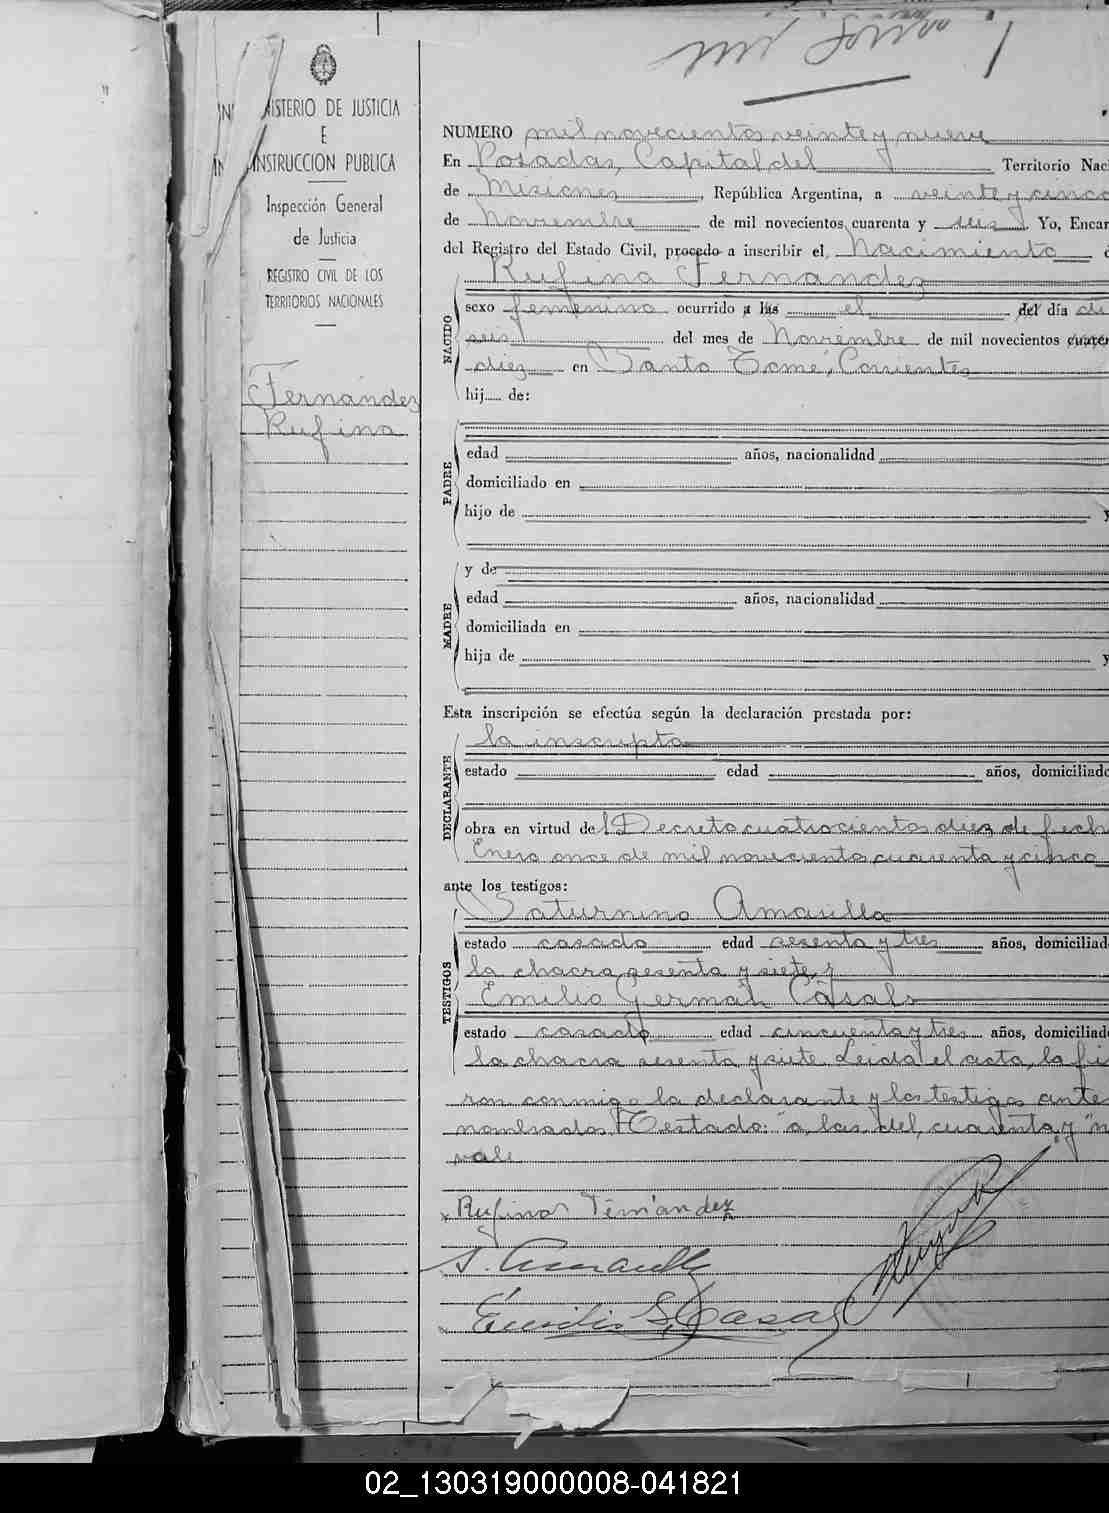 MINISTERIO DE JUSTICIA
E
INSTRUCCION PUBLICA
Inspección General
de Justicia
REGISTRO CIVIL DE LOS
TERRITORIOS NACIONALES
Fernández
Rufina
NUMERO mil novecientos veinte y nueve
En Posadas, Capital del Territorio Nac
de Misiones, República Argentina, a veinte y cinco
de Noviembre de mil novecientos cuarenta y seis Yo, Encar
del Registro del Estado Civil, procedo a inscribir el Nacimiento
NACIDO
Rufina Fernandez
sexo femenino ocurrido a las el del día die
seis del mes de Noviembre de mil novecientos cuaren
diez en Santo Tomé, Corrientes
hij..... de:
PADRE
edad años, nacionalidad
domiciliado en
hijo de y
MADRE
y de
edad años, nacionalidad
domiciliada en
hija de y
Esta inscripción se efectúa según la declaración prestada por:
DECLARANTE
la inscripta
estado edad años, domiciliado
obra en virtud del Decreto cuatrocientos diez de fech
Enero once de mil novecientos cuarenta y cinco
ante los testigos:
TESTIGOS
Saturnino Amarilla
estado casado edad sesenta y tres años, domiciliad
la chacra sesenta y siete y
Emilio Germán Casals
estado casado edad cincuenta y tres años, domiciliad
la chacra sesenta y siete. Leida el acta, la fi
ron conmigo la declarante y los testigos ante
nombrados. Testado: "a las del, cuarenta y" n
vale
Rufina Fernández
S. Amarilla
Emilio G. Casals
02_130319000008-041821